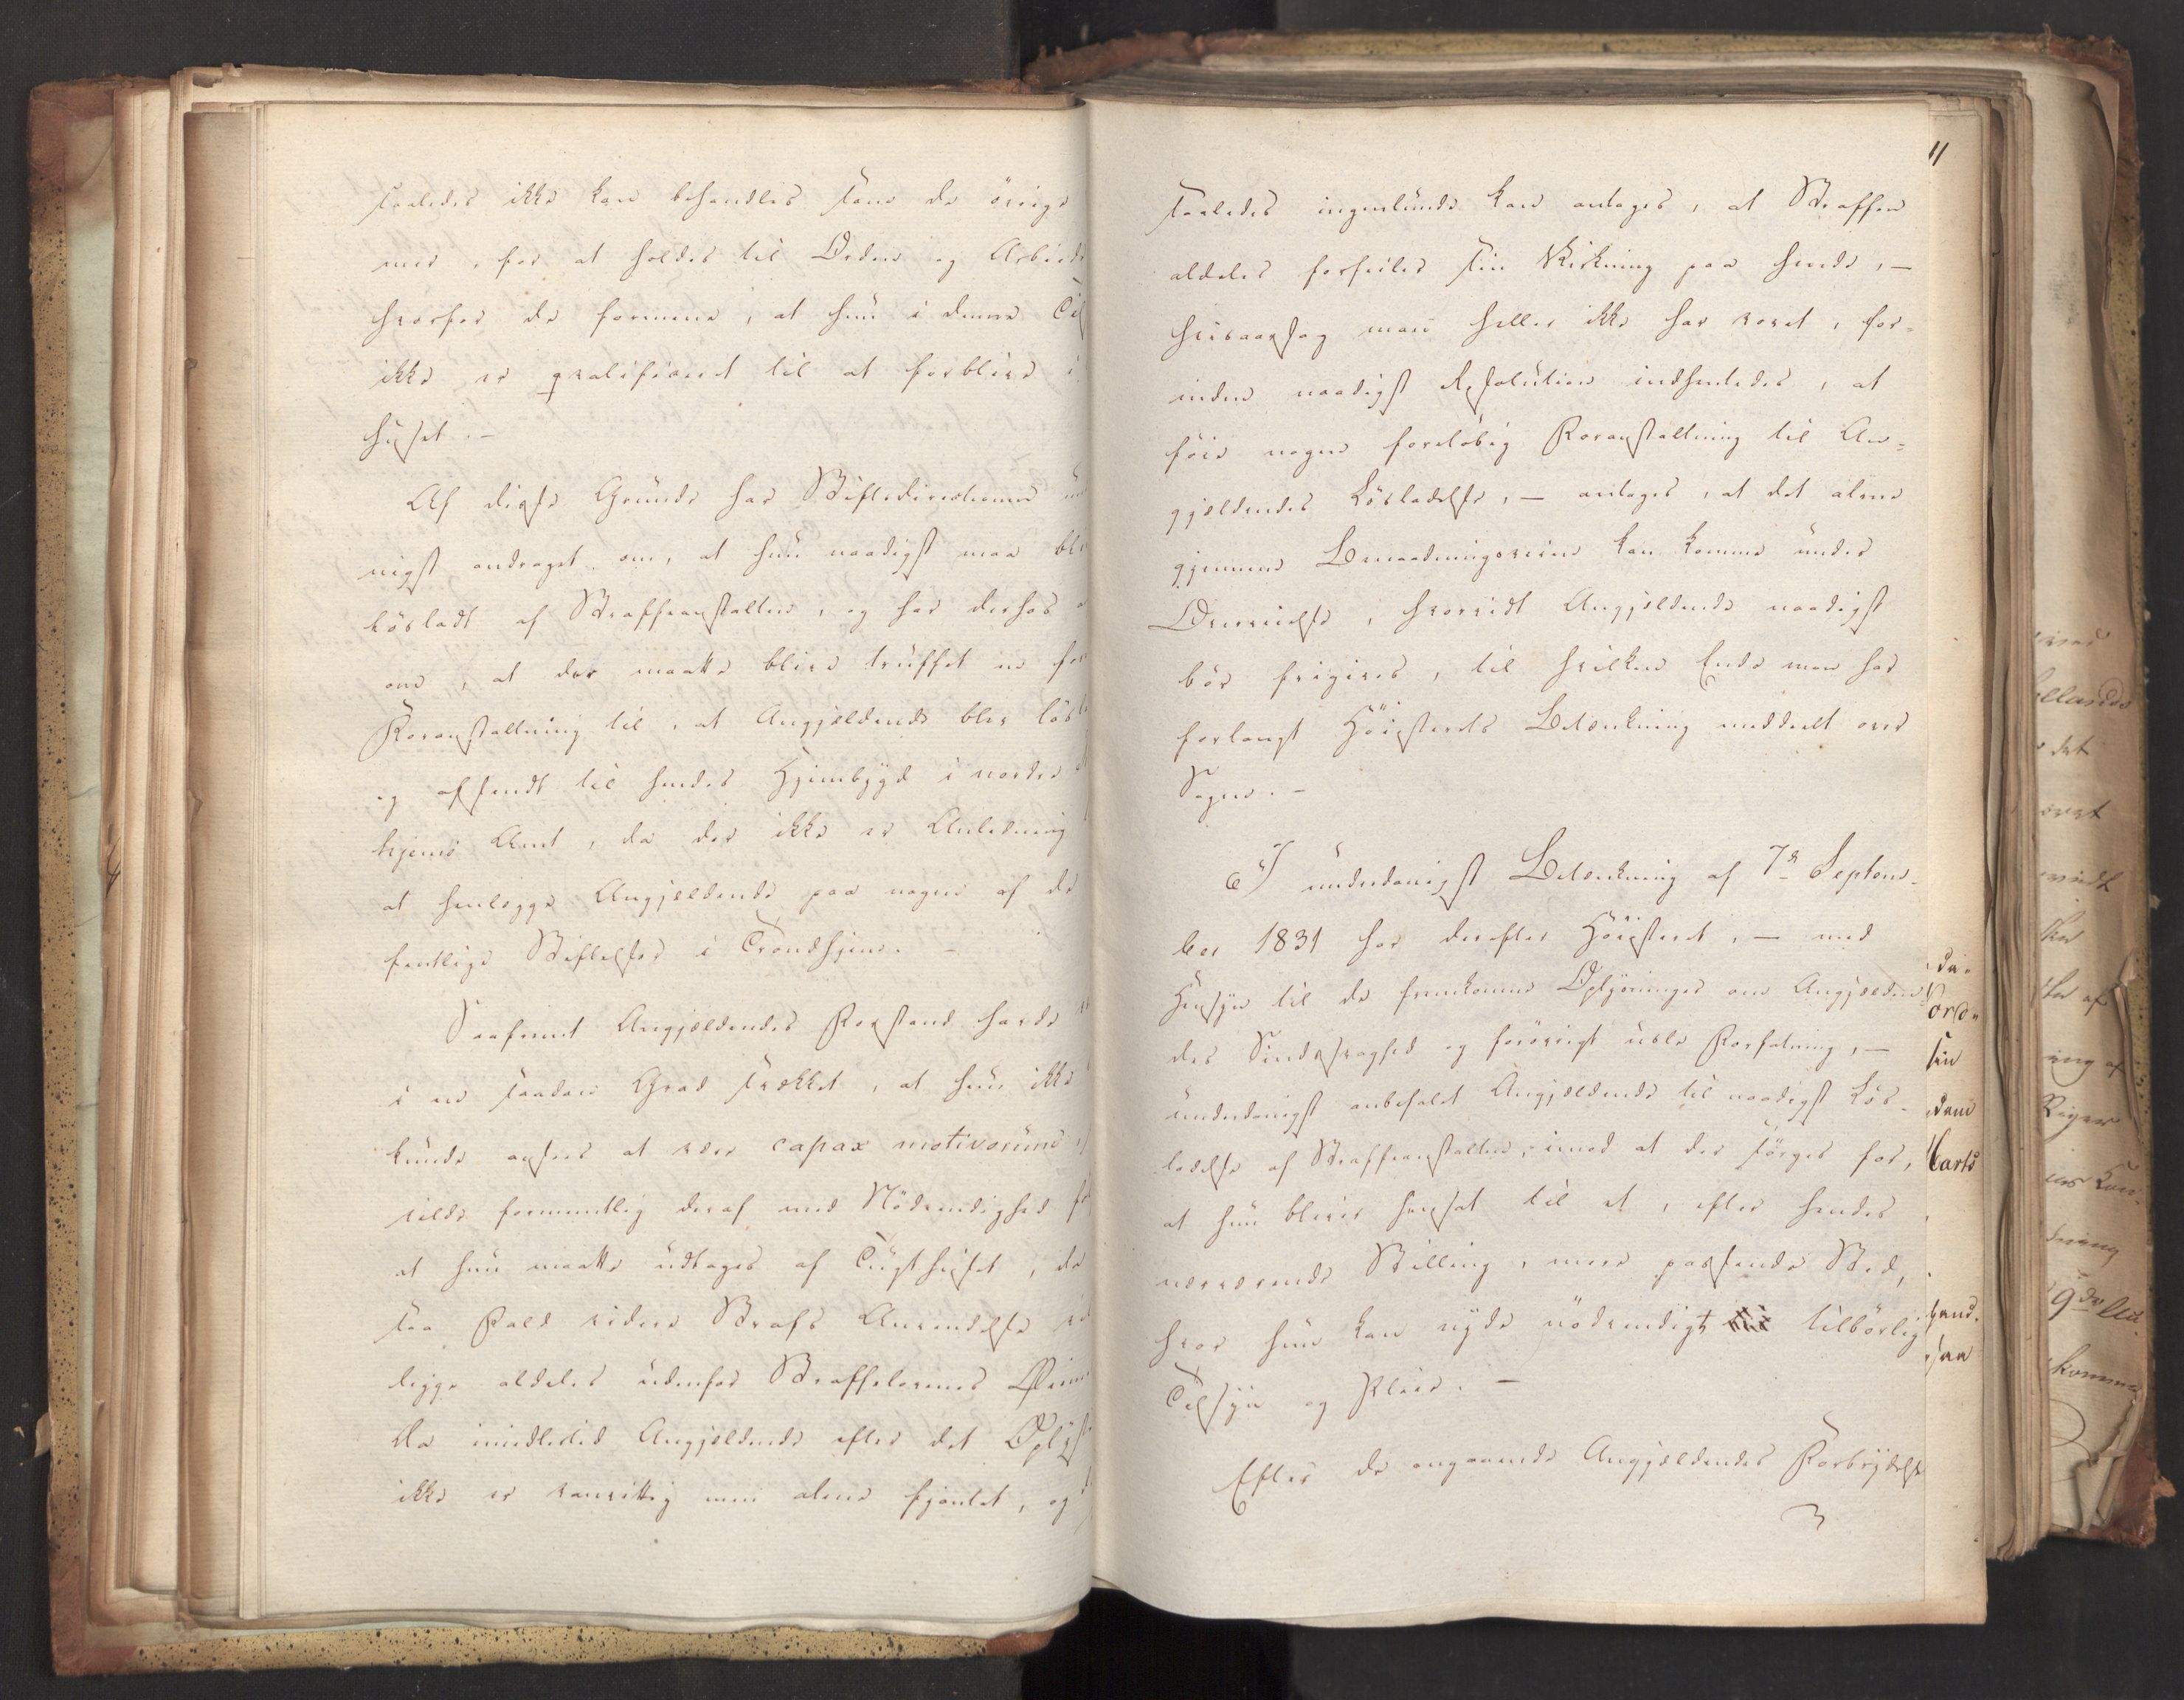 saaledes ikke kan behandles som de øvrige
mer, for at holdes til Orden og Arbeide
hvorfor de formene, at hun i denne Til
ikke er qvalificeret til at forblive i
huset.-
Af disse Grunde har Stiftsdirectionen un
nigst andraget om, at hun naadigst maa bli
løsladt af Straffeanstalten, og har derhos a
om, at der maatte blive truffet en for
Foranstaltning til, at Angjældende blev løsla
og afsendt til hendes Hjembygd i nordre
hjems Amt, da der ikke er Anledning
at henlægge Angjældende paa nogen af de
fentlige Stiftelser i Trondhjem. -
Saafremt Angjældendes Forstand havde
i en saadan Grad svækket, at hun ikke
kunde ansees at være capax motivorum,
vilde formentlig deraf med Nödvendighed föl
at hun maatte udtages af Tugthuset, da
saa Fald videre Strafs Anvendelse vil
ligge aldeles udenfor Straffelovens
Da imidlertid Angjældende efter det Oplyst
ikke er vanvittig men alene fjantet, og
11
saaledes ingenlunde kan antages, at Straffen
aldeles forfeiler sin Virkning paa hende, —
hvisaarsag man heller ikke har vovet, for-
inden naadigst Resolution indhentedes, at
föie nogen foreløbig Foranstaltning til An-
gjældendes Lösladelse, — antages, at det alene
gjennem Benaadningsveien kan komme under
Overveielse, hvorvidt Angjældende naadigst
bör frigives, til hvilken Ende man har
forlangt Höiesterets Betænkning meddeelt over
Sagen. -
I underdanigst Betænkning af 7de Septem-
ber 1831 har derefter Höiesteret, — med
Hensyn til de fremkomne Oplysninger om Angjælden-
des Sindssvaghed og forövrigt usle Forfatning, —
underdanigst anbefalet Angjældende til naadigst Lös-
ladelse af Straffeanstalten, imod at der sörges for,
at hun bliver hensat til et, efter hendes
nærværende Stilling, mere passende Sted,
hvor hun kan nyde nödvendigt tilbörlig
Tilsyn og Pleie. -
Efter de angaaende Angjældendes Forbrydelse